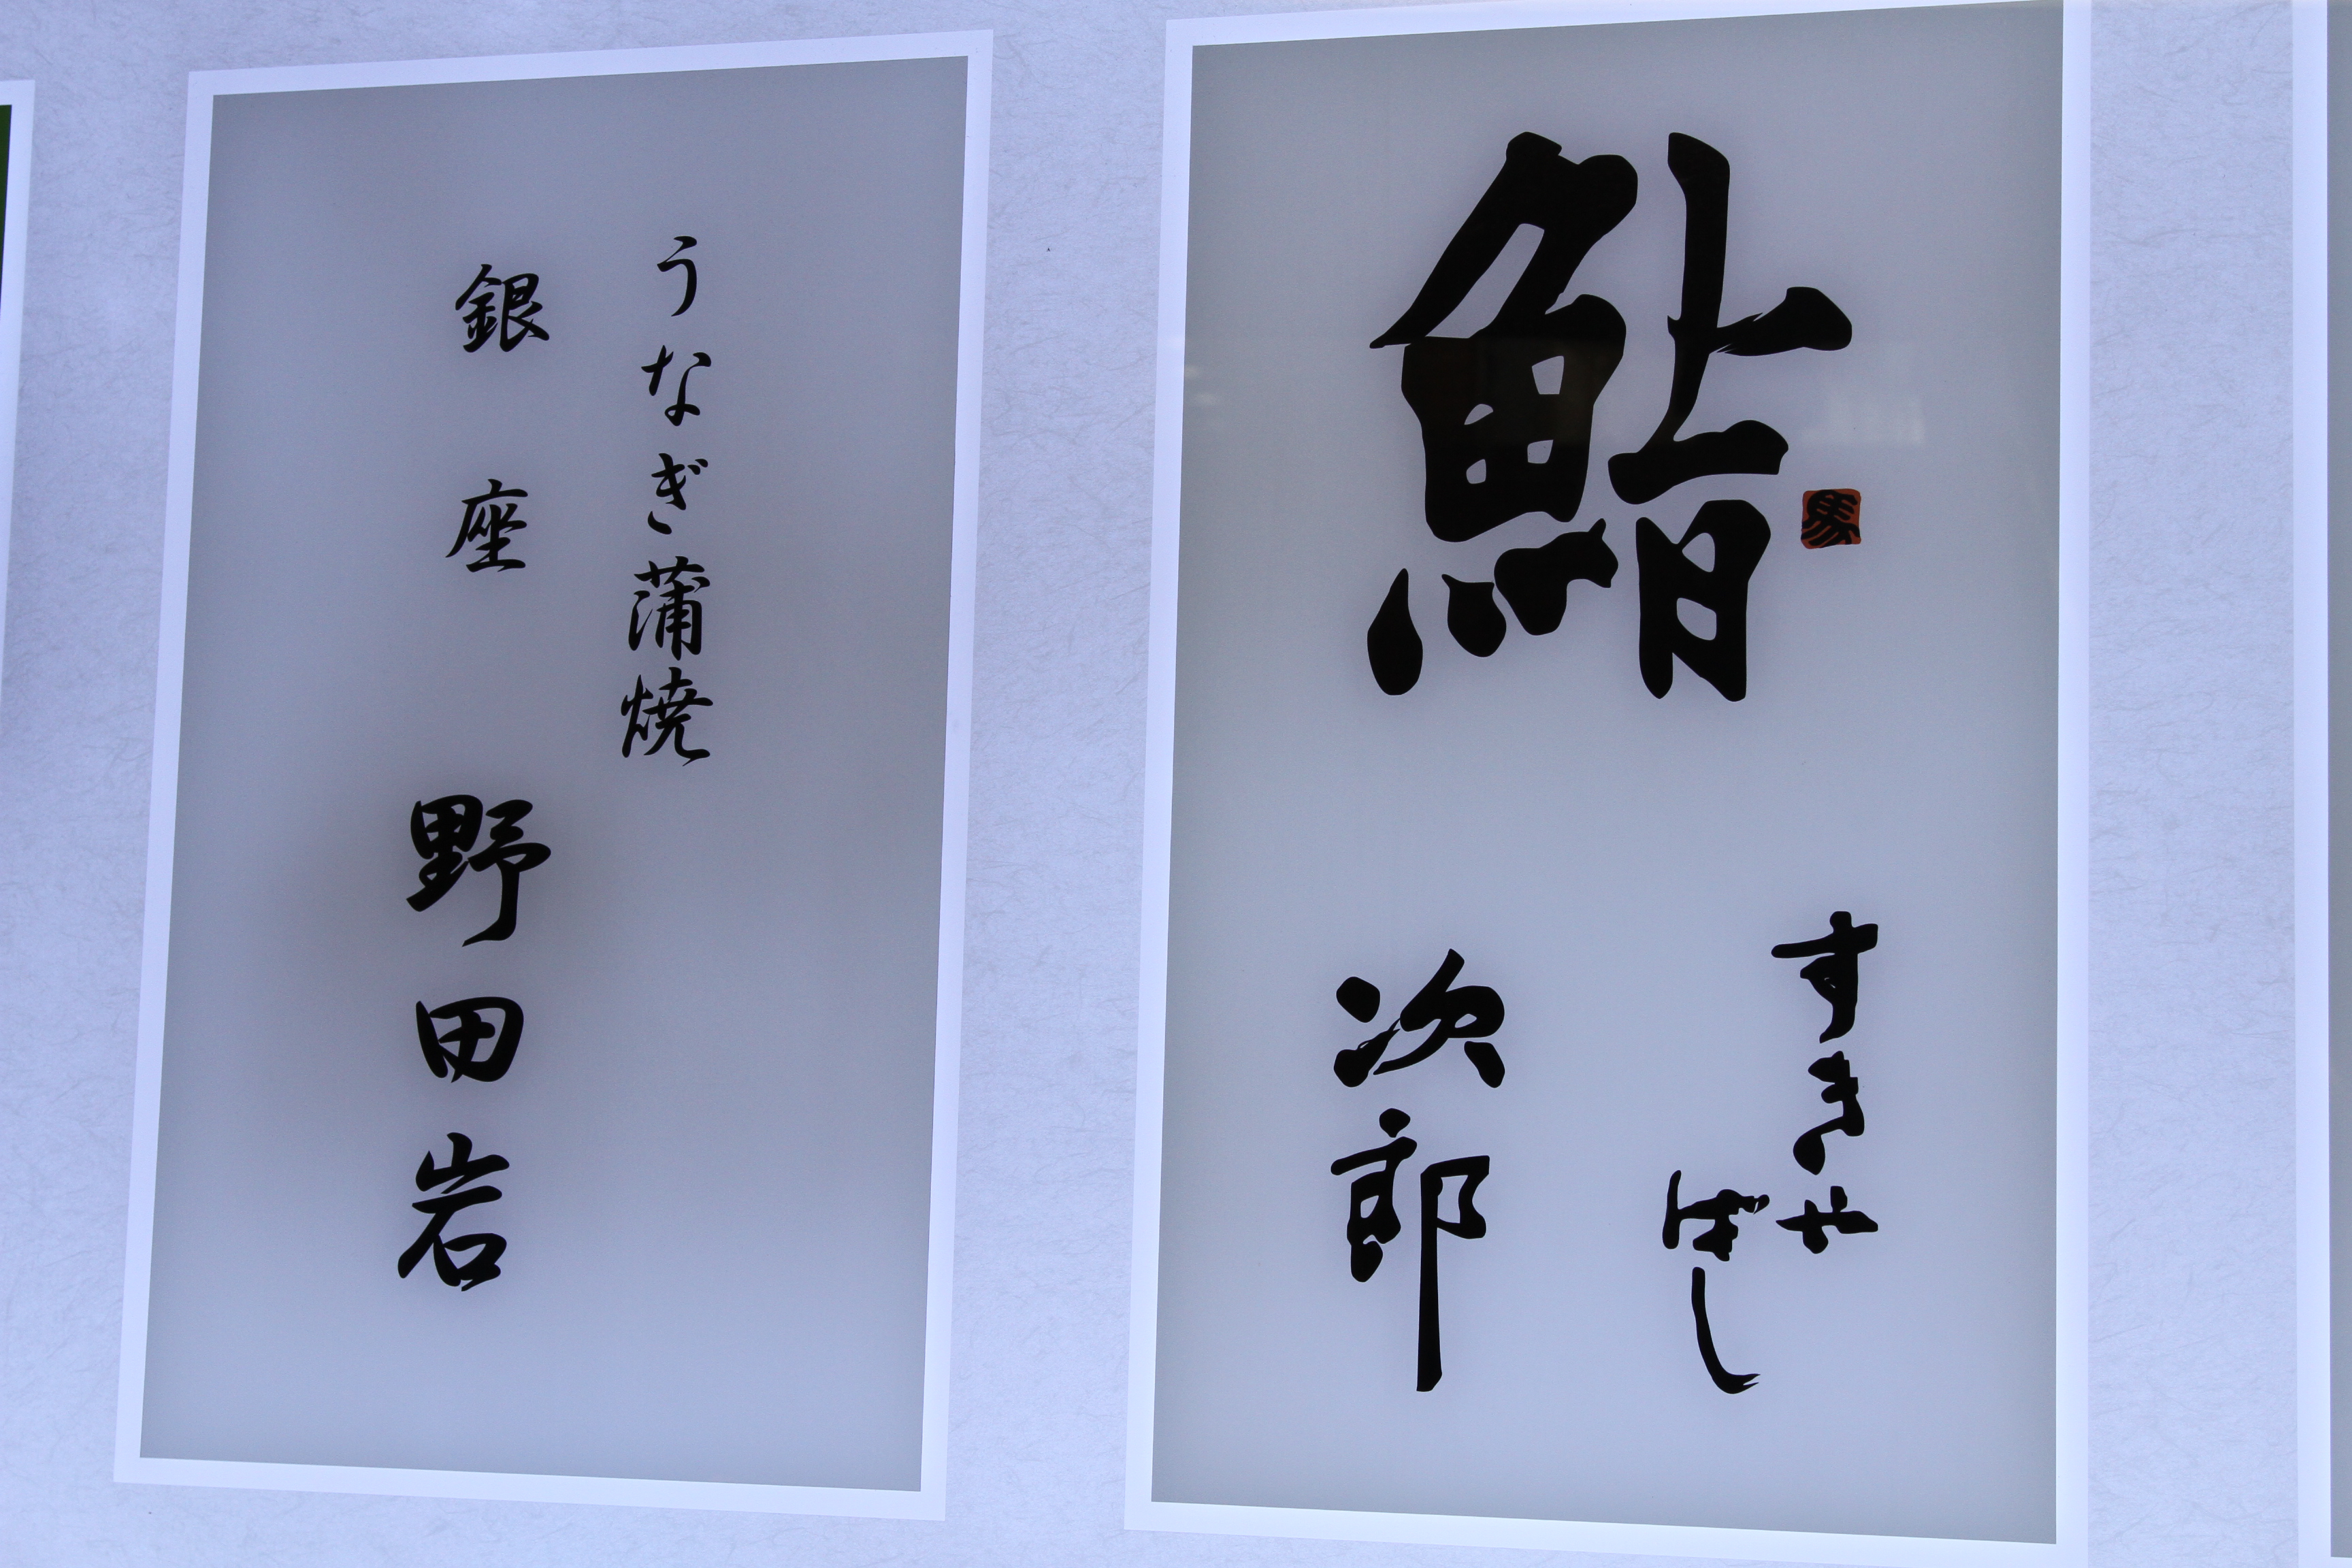 鮨
すきや
ばし
次郎
馬
うなぎ蒲焼
銀座 野田岩